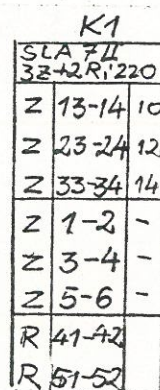 K1
SLA 74
3Z+2Ri220
Z 13-14 10
Z 23-24 12
Z 33-34 14
Z 1-2 -
Z 3-4 -
Z 5-6 -
R 41-42
R 51-52